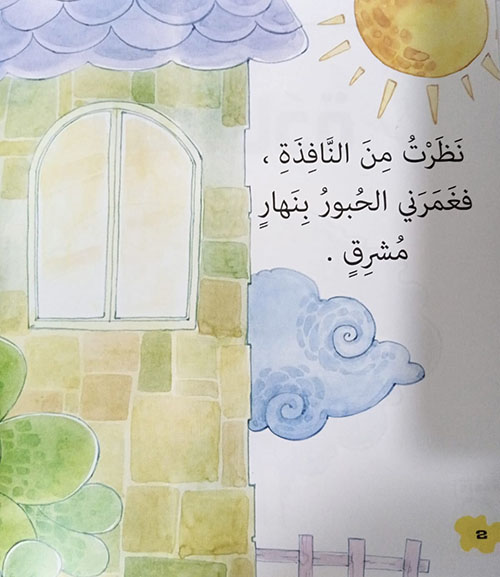 نَظَرْتُ مِنَ النَّافِذَةِ ،
فغَمَرَني الحُبورُ بِنَهارٍ
مُشرِقٍ .
2